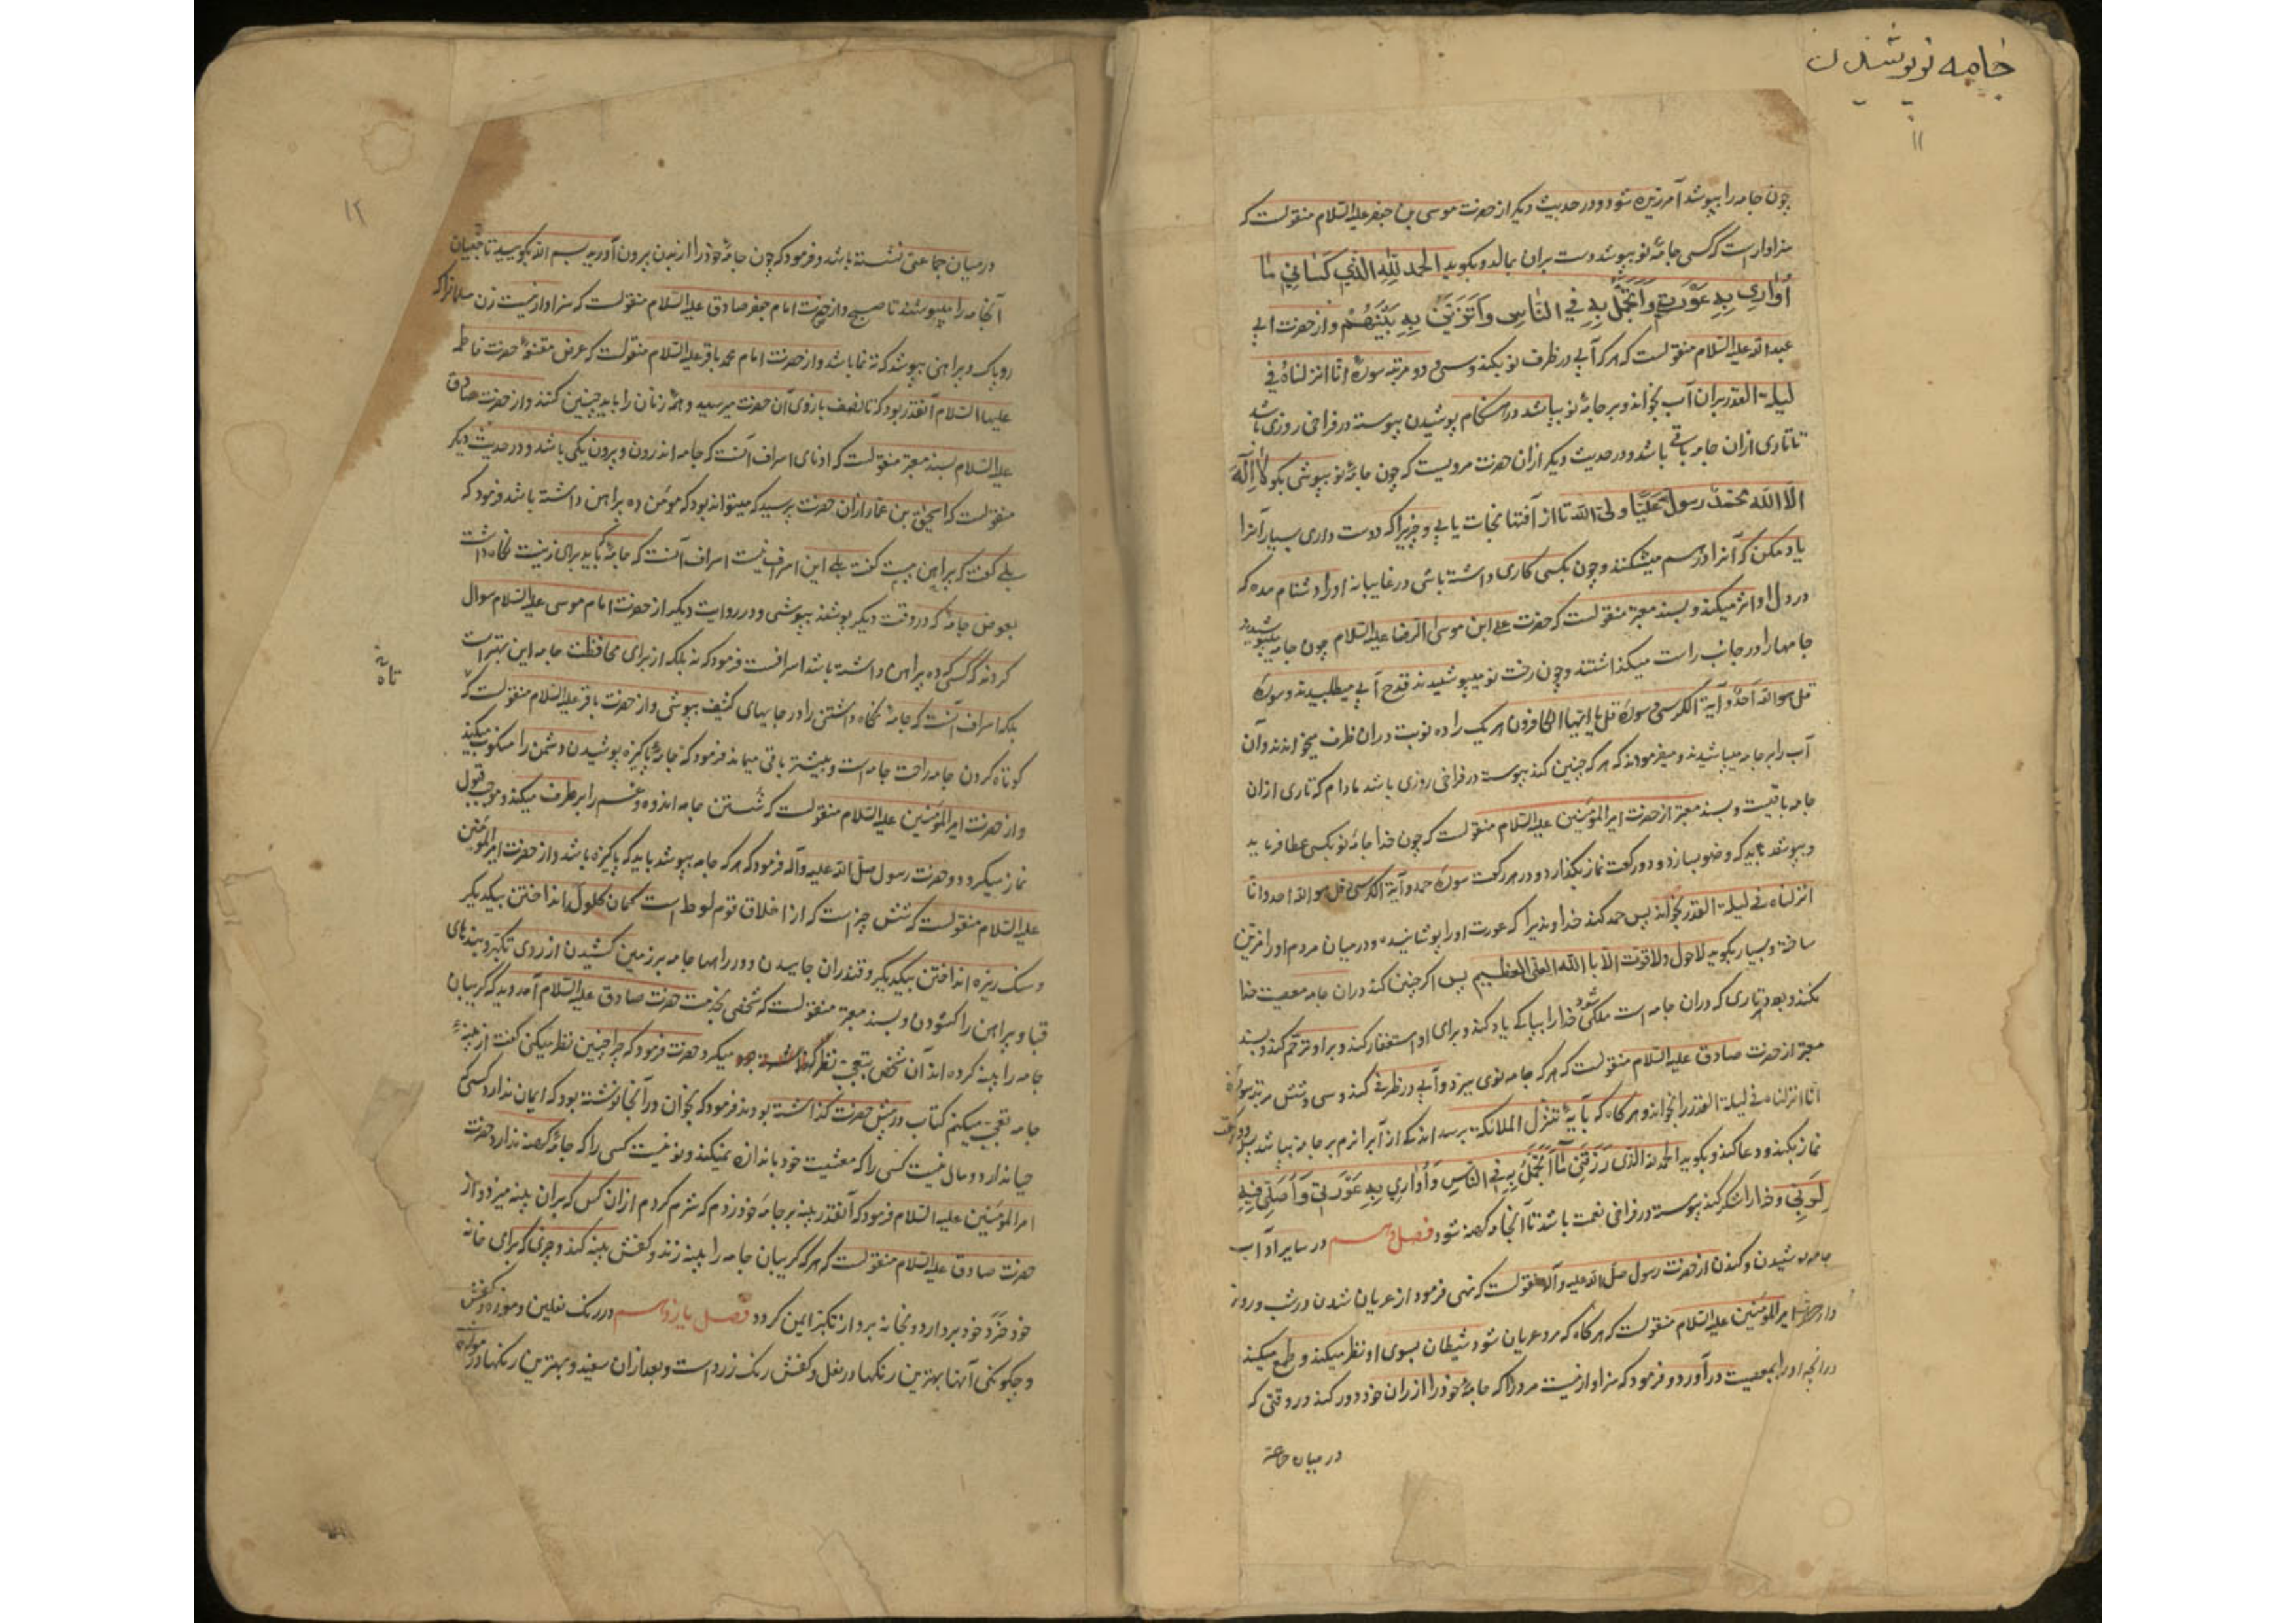 جامه نو پوشیدن
۱۱
چون جامه را بپوشد آمرزیده شود و در حدیث دیگر از حضرت موسی بن جعفر علیه السلام منقولست که
سزاوار است که کسی جامهٔ نو بپوشد دست بران بمالد و بگوید الحمد لله الذی کسانی ما
أواری به عورتی وأتجمل به فی الناس وأتزین به بینهم و از حضرت ابی
عبدالله علیه السلام منقولست که هر که آبی در ظرف نو بکند و سی و دو مرتبه سورهٔ انا انزلناه فی
لیلة القدر بران آب بخواند و بر جامهٔ نو بپاشد در هنکام پوشیدن پیوسته در فراخی روزی باشد
تا تاری ازان جامه باقی باشد و در حدیث دیگر ازان حضرت مرویست که چون جامهٔ نو بپوشی بکو لا اله
الا الله محمد رسول علیا ولی الله تا از آفتها نجات یابی و چیزیرا که دوست داری بسیار آنرا
یاد مکن که آنرا درهم میشکند و چون بکسی کاری داشته باشی در غایبانه او را دشنام مده که
در دل او اثر میکند و بسند معتبر منقولست که حضرت علی ابن موسی الرضا علیه السلام چون جامه میپوشیدند
جامها را در جانب راست میکذاشتند و چون رخت نو میپوشیدند قدح آبی میطلبیدند و سورهٔ
قل هو الله احد و آیة الکرسی و سورهٔ قل یا ایها الکافرون هر یک را ده نوبت دران ظرف میخواندند و آن
آب را بر جامه میپاشیدند و میفرمودند که هر که چنین کند پیوسته در فراخی روزی باشد مادام که تاری ازان
جامه باقیست و بسند معتبر از حضرت امیرالمؤمنین علیه السلام منقولست که چون خدا جامهٔ نو بکسی عطا فرماید
و بپوشد باید که وضو بسازد و دو رکعت نماز بکذارد و در هر رکعت سورهٔ حمد و آیة الکرسی و قل هو الله احد و انا
انزلناه فی لیلة القدر بخواند پس حمد کند خداوندیرا که عورت او را پوشانیده و در میان مردم او را مزین
ساخته و بسیار بکوید لاحول ولاقوت الا بالله العلی العظیم پس اکر چنین کند دران جامه معصیت خدا
نکند و بعدد هر تاری که دران جامه است ملکی شود خدا را بپاکی یاد کند و برای او استغفار کند و براو ترحم کند و بسند
معتبر از حضرت صادق علیه السلام منقولست که هر که جامه نوی ببرد و آبی در ظرفی کند و سی و شش مرتبه سورهٔ
انا انزلناه فی لیلة القدر را بخواند و هر کاه که بآیهٔ تنزل الملائکه برسد اندکی از آب را نرم بر جامه بپاشد پس دو رکعت
نماز بکند و دعا کند و بکوید الحمد لله الذی رزقنی ما أتجمل به فی الناس وأواری به عورتی وأصلی فیه
لربی و خدا را شکر کند پیوسته در فراخی نعمت باشد تا آنجامه کهنه شود فصل دهم در سایر آداب
جامه پوشیدن و کندن از حضرت رسول صلی الله علیه وآله منقولست که نهی فرمود از عریان شدن در شب و روز
و از حضرت امیرالمؤمنین علیه السلام منقولست که هرکاه که مرد عریان شود شیطان بسوی او نظر میکند و طمع میکند
در آنچه او را بمعصیت درآورد و فرمود که سزاوار نیست مرد را که جامهٔ خود را از ران خود دور کند در وقتی که
در میان جماعتی
۱۲
در میان جماعتی نشسته باشد و فرمود که چون جامهٔ خود را از بدن بیرون آورید بسم الله بکویید تا جنیان
آنجامه را نپوشند تا صبح و از حضرت امام جعفر صادق علیه السلام منقولست که سزاوار نیست زن مسلمانرا که
روپاک و پیراهنی بپوشد که نه نما باشد و از حضرت امام محمد باقر علیه السلام منقولست که عرض مقنعهٔ حضرت فاطمه
علیها السلام آنقدر بود که تا نصف بازوی آن حضرت میرسید و همهٔ زنان را باید چنین کنند و از حضرت صادق
علیه السلام بسند معتبر منقولست که ادنای اسراف آنست که جامه اندرون و بیرون یکی باشد و در حدیث دیگر
منقولست که اسحق بن عمار ازان حضرت پرسید که میتواند بود که مؤمن ده پیراهن داشته باشد فرمود که
بلی گفت که پیراهن بیست گفت بلی این اسراف نیست اسراف آنست که جامهٔ که باید برای زینت نکاه داشت
بعوض جامهٔ که در وقت دیگر پوشند بپوشی و در روایت دیگر از حضرت امام موسی علیه السلام سوال
کردند که کسی که ده پیراهن داشته باشد اسرافست فرمود که نه بلکه از برای محافظت جامه این بهتر است
بلکه اسراف آنست که جامهٔ نکاه داشتنی را در جایهای کثیف بپوشی و از حضرت باقر علیه السلام منقولست که
تاه
کوتاه کردن جامه راحت جامه است و بیشتر باقی میماند فرمود که جامهٔ پاکیزه پوشیدن دشمن را منکوب میکند
و از حضرت امیرالمؤمنین علیه السلام منقولست که شستن جامه اندوه و غم را برطرف میکند و موجب قبول
نماز میکردد و حضرت رسول صلی الله علیه وآله فرمود که هر که جامه بپوشد باید که پاکیزه باشد و از حضرت امیرالمؤمنین
علیه السلام منقولست که شش چیز است که از اخلاق قوم لوط است کمان کلوله انداختن بیکدیگر
و سنک ریزه انداختن بیکدیگر و قندران جاییدن و در راهها جامه بر زمین کشیدن از روی تکبر و بندهای
قبا و پیراهن را کشودن و بسند معتبر منقولست که شخصی بخدمت حضرت صادق علیه السلام آمد و دید که کریبان
جامه را پینه کرده اند آن شخص بتعجب نظر میکرد حضرت فرمود که چرا چنین نظر میکنی گفت از پینهٔ
جامه تعجب میکنم کتاب در پیش حضرت کذاشته بودند فرمود که بخوان در آنجا نوشته بود که ایمان ندارد کسی که
حیا ندارد و مال نیست کسی را که معشیت خود باندازه نمیکند و نو نیست کسی را که جامهٔ کهنه ندارد حضرت
امیرالمؤمنین علیه السلام فرمود که آنقدر پینه بر جامهٔ خود زدم که شرم کردم ازان کس که بران پینه میزد و از
حضرت صادق علیه السلام منقولست که هر که کریبان جامه را پینه زند و کفش پینه کند و چیزی که برای خانه
خود خرد خود بردارد و بخانه برد از تکبر ایمن کردد فصل یازدهم در رنک نعلین و موزه و کفش
و چکونکی آنها بهترین رنکها در نعل و کفش رنک زرد است و بعد ازان سفید و بهترین رنکها در موزه